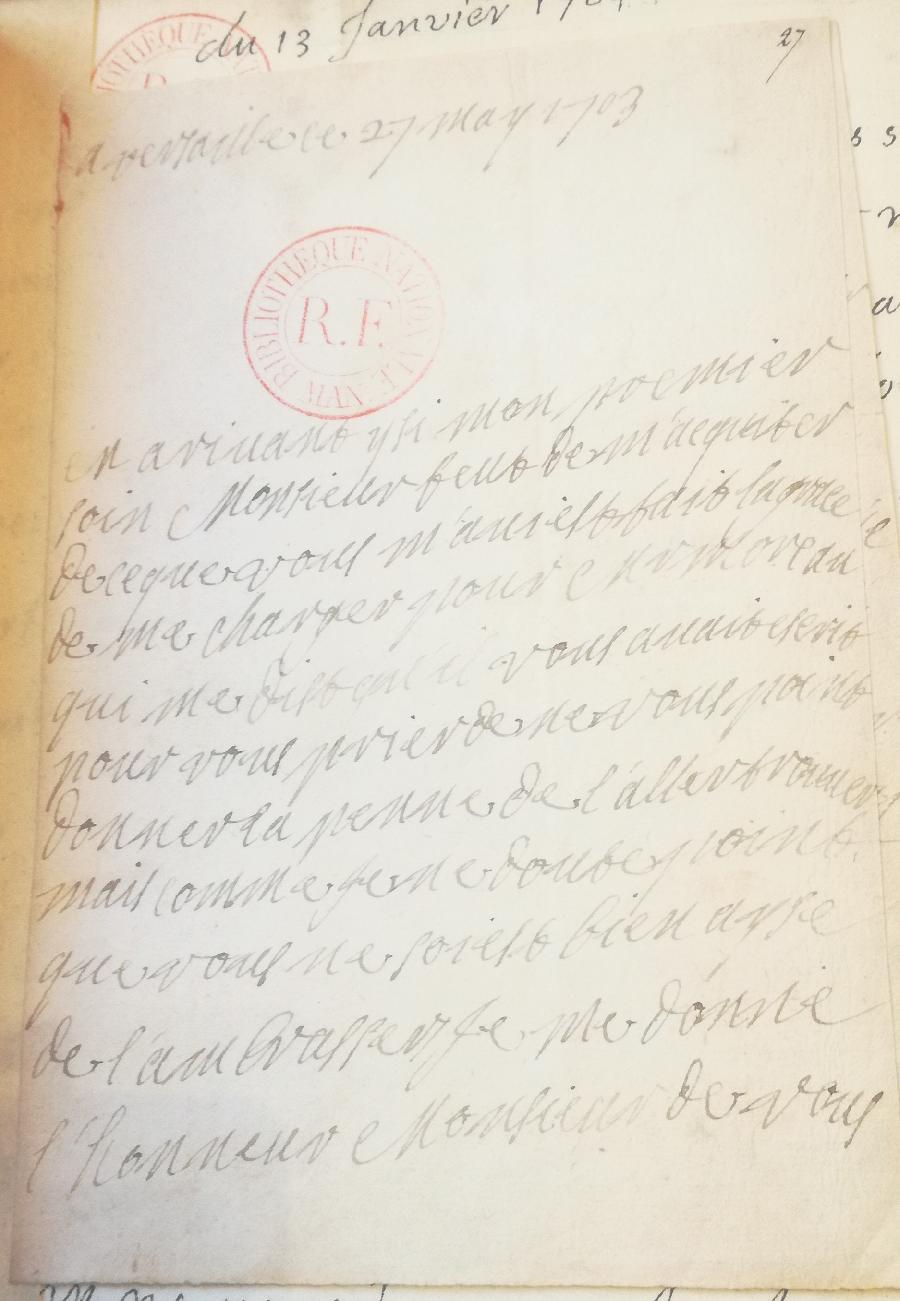 du 13 Janvier 1704
27
a versaille ce 27 may 1703
BIBLIOTHEQUE NATIONALE MAN
R.F.
en ariuant ysi mon premier
soin Monsieur feut de m'acquiter
de ce que vous m'auiest fait la grace
de me charger pour
qui me dist qu'il vous auait escrit
pour vous prier de ne vous point
donner la penne de l'aller trouuer
mais comme je ne doute point
que vous ne soiest bien ayse
de l'ambrasser je me donne
l'honneur Monsieur de vous